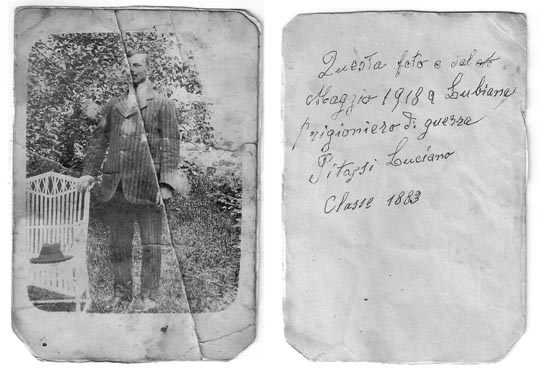 Questa foto e dal
Maggio 1918 a Lubiana
Prigioniero di guerra
Pitassi Luciano
Classe 1883